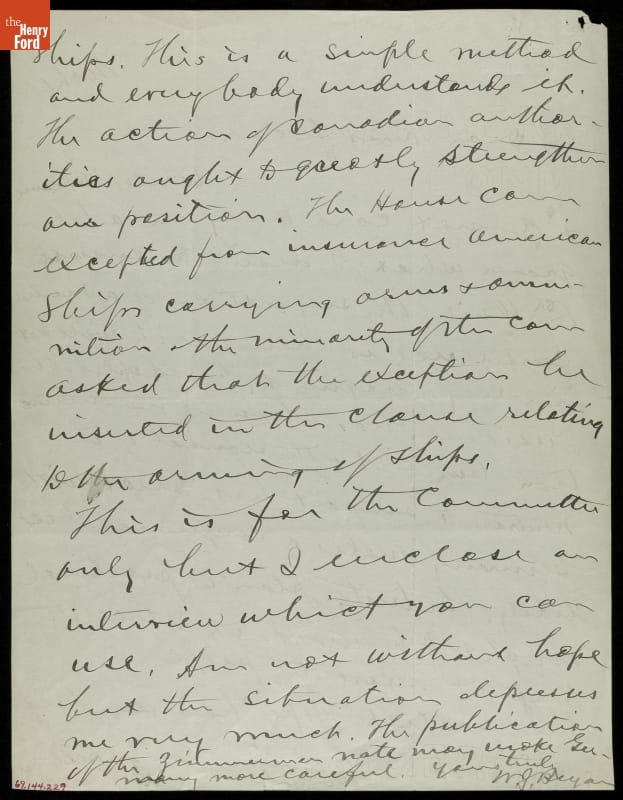 the
Henry
Ford
ships. This is a simple method
and everybody understands it.
The action of Canadian author-
ities ought to greatly strengthen
our position. The House Com
excepted from insurance American
ships carrying arms & ammu-
nition & the minority of the Com
asked that the exception be
inserted in the clause relating
to the arming of ships.
This is for the Committee
only but I enclose an
interview which you can
use. Am not without hope
but the situation depresses
me very much. The publication
of the Zimmerman note may make Ger-
many more careful. Yours truly
W. J. Bryan
69.144.229